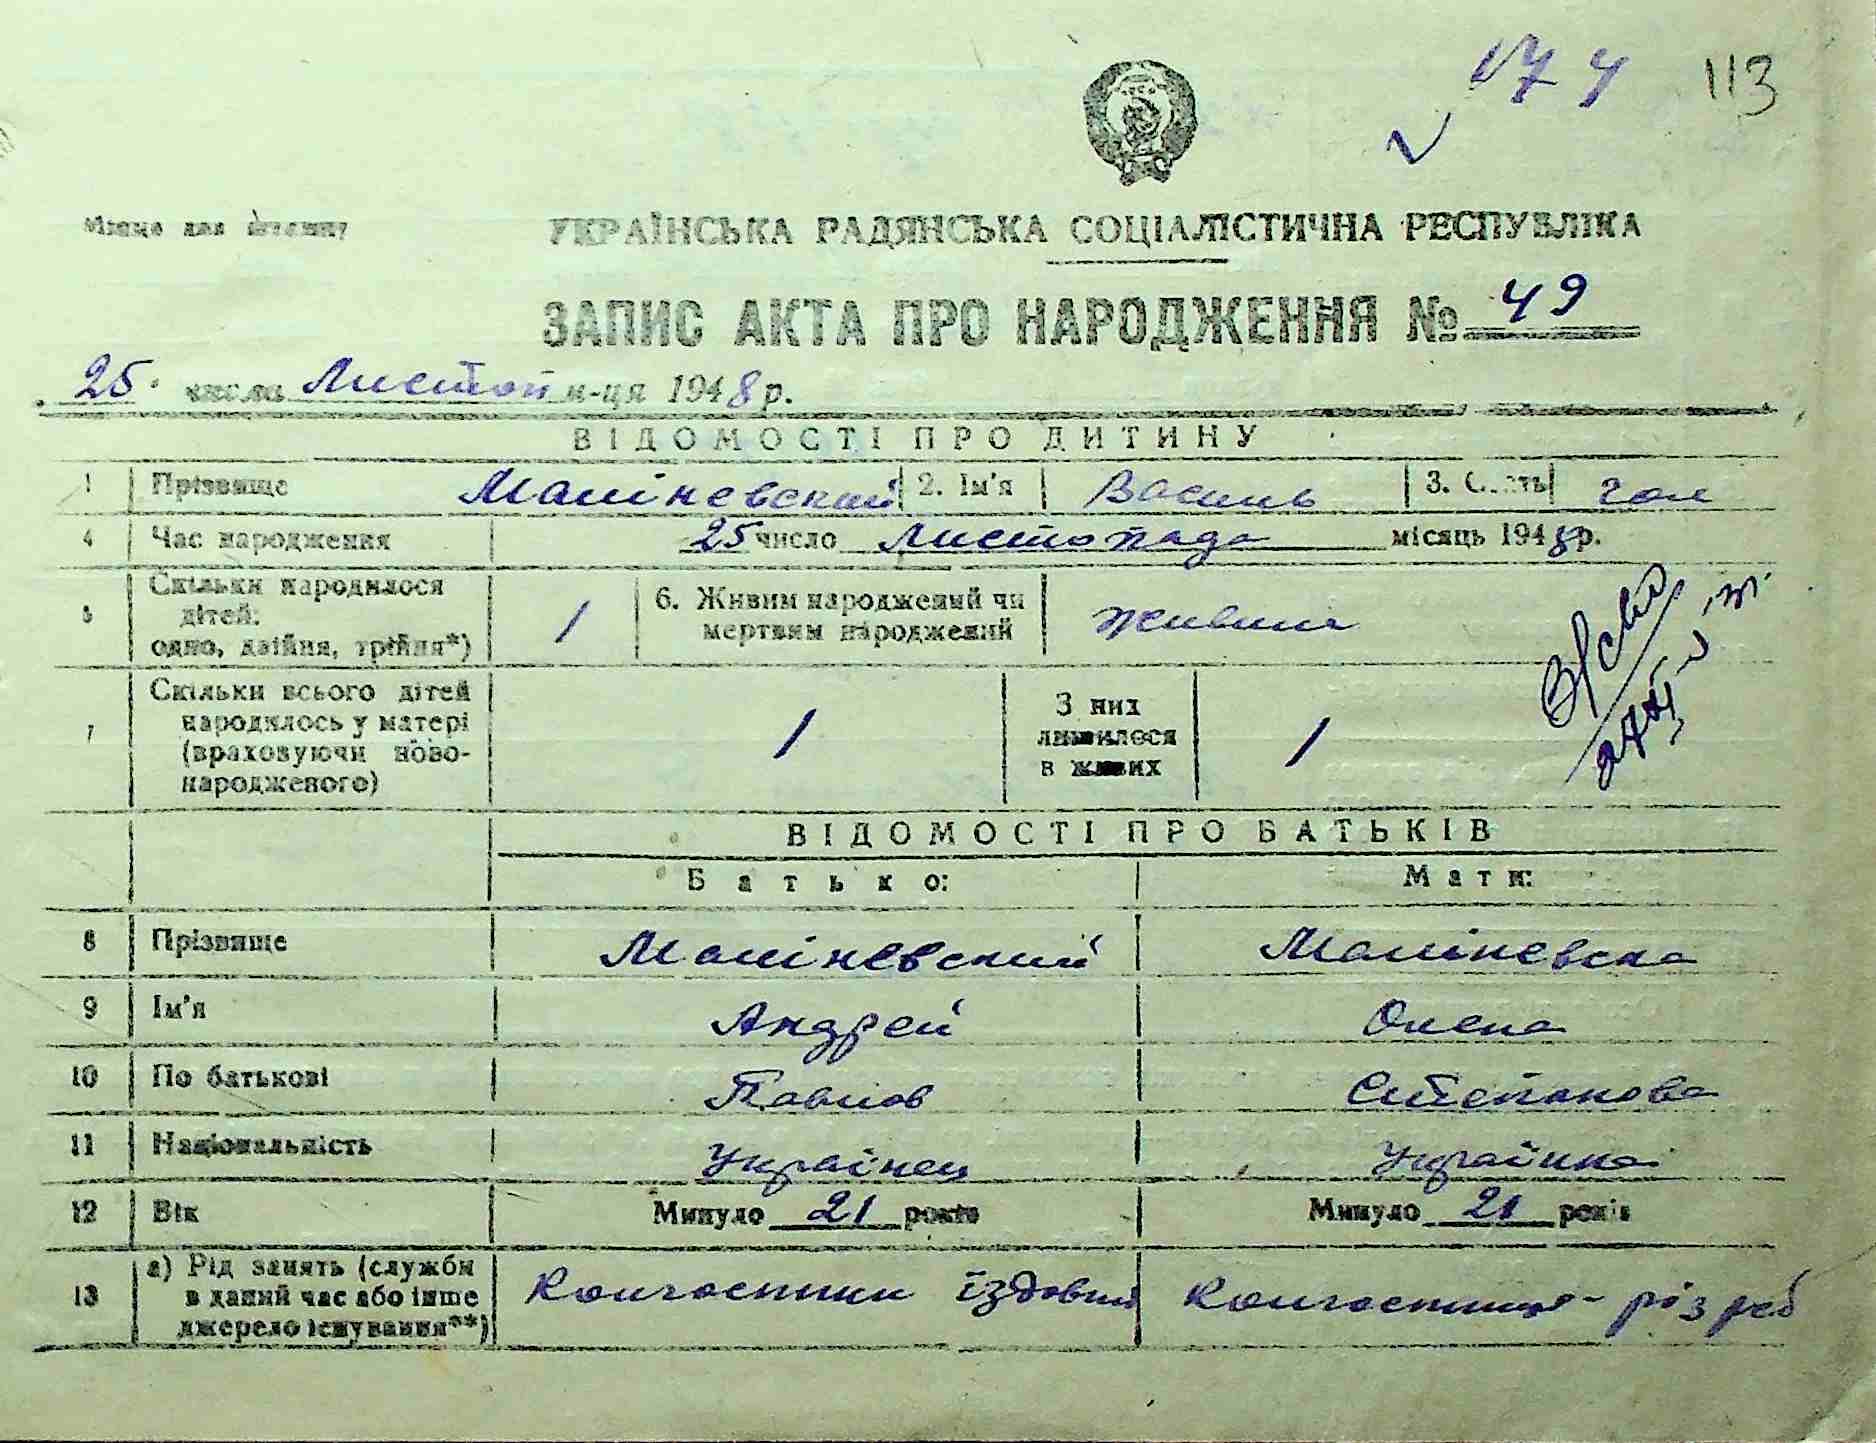 174 113
Місце для штампу
УКРАЇНСЬКА РАДЯНСЬКА СОЦІАЛІСТИЧНА РЕСПУБЛІКА
ЗАПИС АКТА ПРО НАРОДЖЕННЯ № 49
25 числа Листоп м-ця 1948 р.
ВІДОМОСТІ ПРО ДИТИНУ
1 Прізвище Маліневский 2. Ім'я Василь 3. Стать чол
4 Час народження 25 число листопада місяць 1948 р.
5 Скільки народилося дітей: одно, двійня, трійня*) 1 6. Живим народжений чи мертвим народжений живим
7 Скільки всього дітей народилось у матері (враховуючи новонародженого) 1 З них лишилося в живих 1
ВІДОМОСТІ ПРО БАТЬКІВ
Батько: Мати:
8 Прізвище Маліневский Маліневска
9 Ім'я Андрей Олена
10 По батькові Павлов Степанова
11 Національність Українец Українка
12 Вік Минуло 21 років Минуло 21 років
13 а) Рід занять (служби в даний час або інше джерело існування**) Колгоспник їздовий Колгоспниця - різ роб